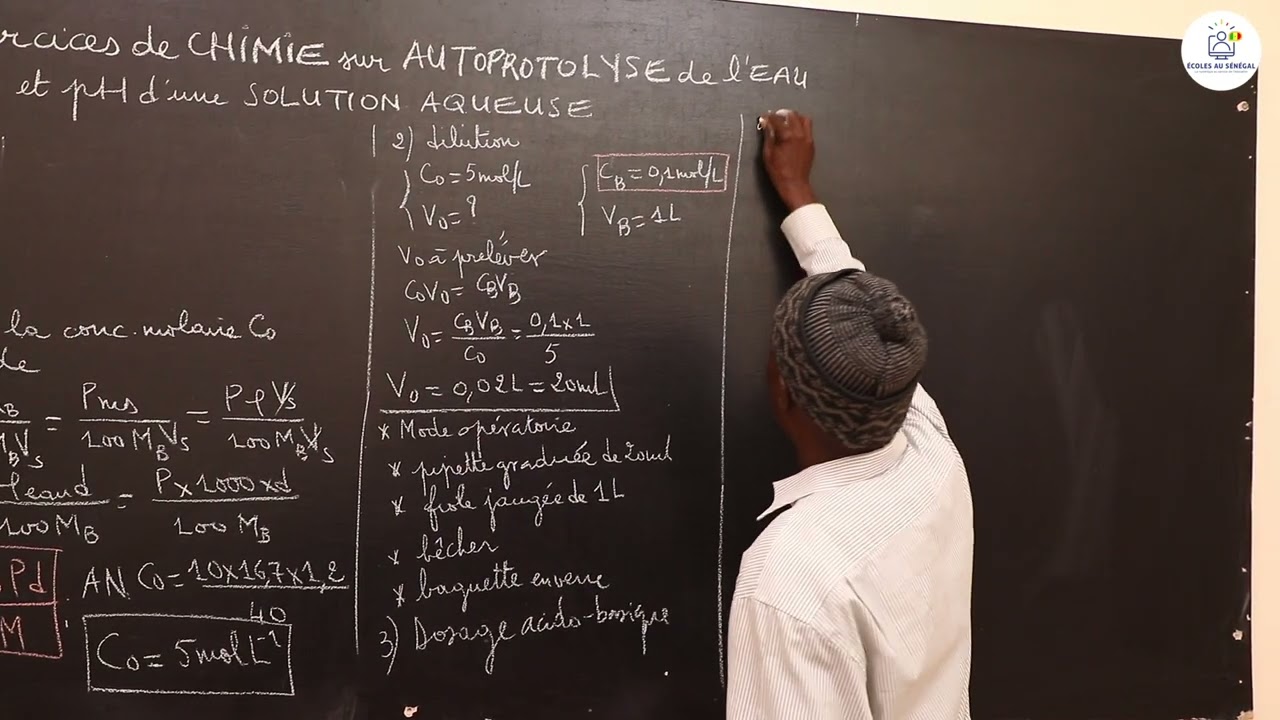 rcices de CHIMIE sur AUTOPROTOLYSE de l'EAU
et pH d'une SOLUTION AQUEUSE
la conc. molaire C0
de
= Pms / 100 MB Vs = P ρ Vs / 100 MB Vs
eau d / 100 MB = P x 1000 x d / 100 MB
Pd / M
AN C0 = 10x167x1,2 / 40
C0 = 5 mol L⁻¹
2) dilution
C0 = 5 mol/L
V0 = ?
CB = 0,1 mol/L
VB = 1L
V0 à préléver
C0V0 = CBVB
V0 = CBVB / C0 = 0,1x1 / 5
V0 = 0,02L = 20ml
* Mode opératoire
* pipette graduée de 20ml
* fiole jaugée de 1L
* bêcher
* baguette en verre
3) Dosage acido-basique
ÉCOLES AU SÉNÉGAL